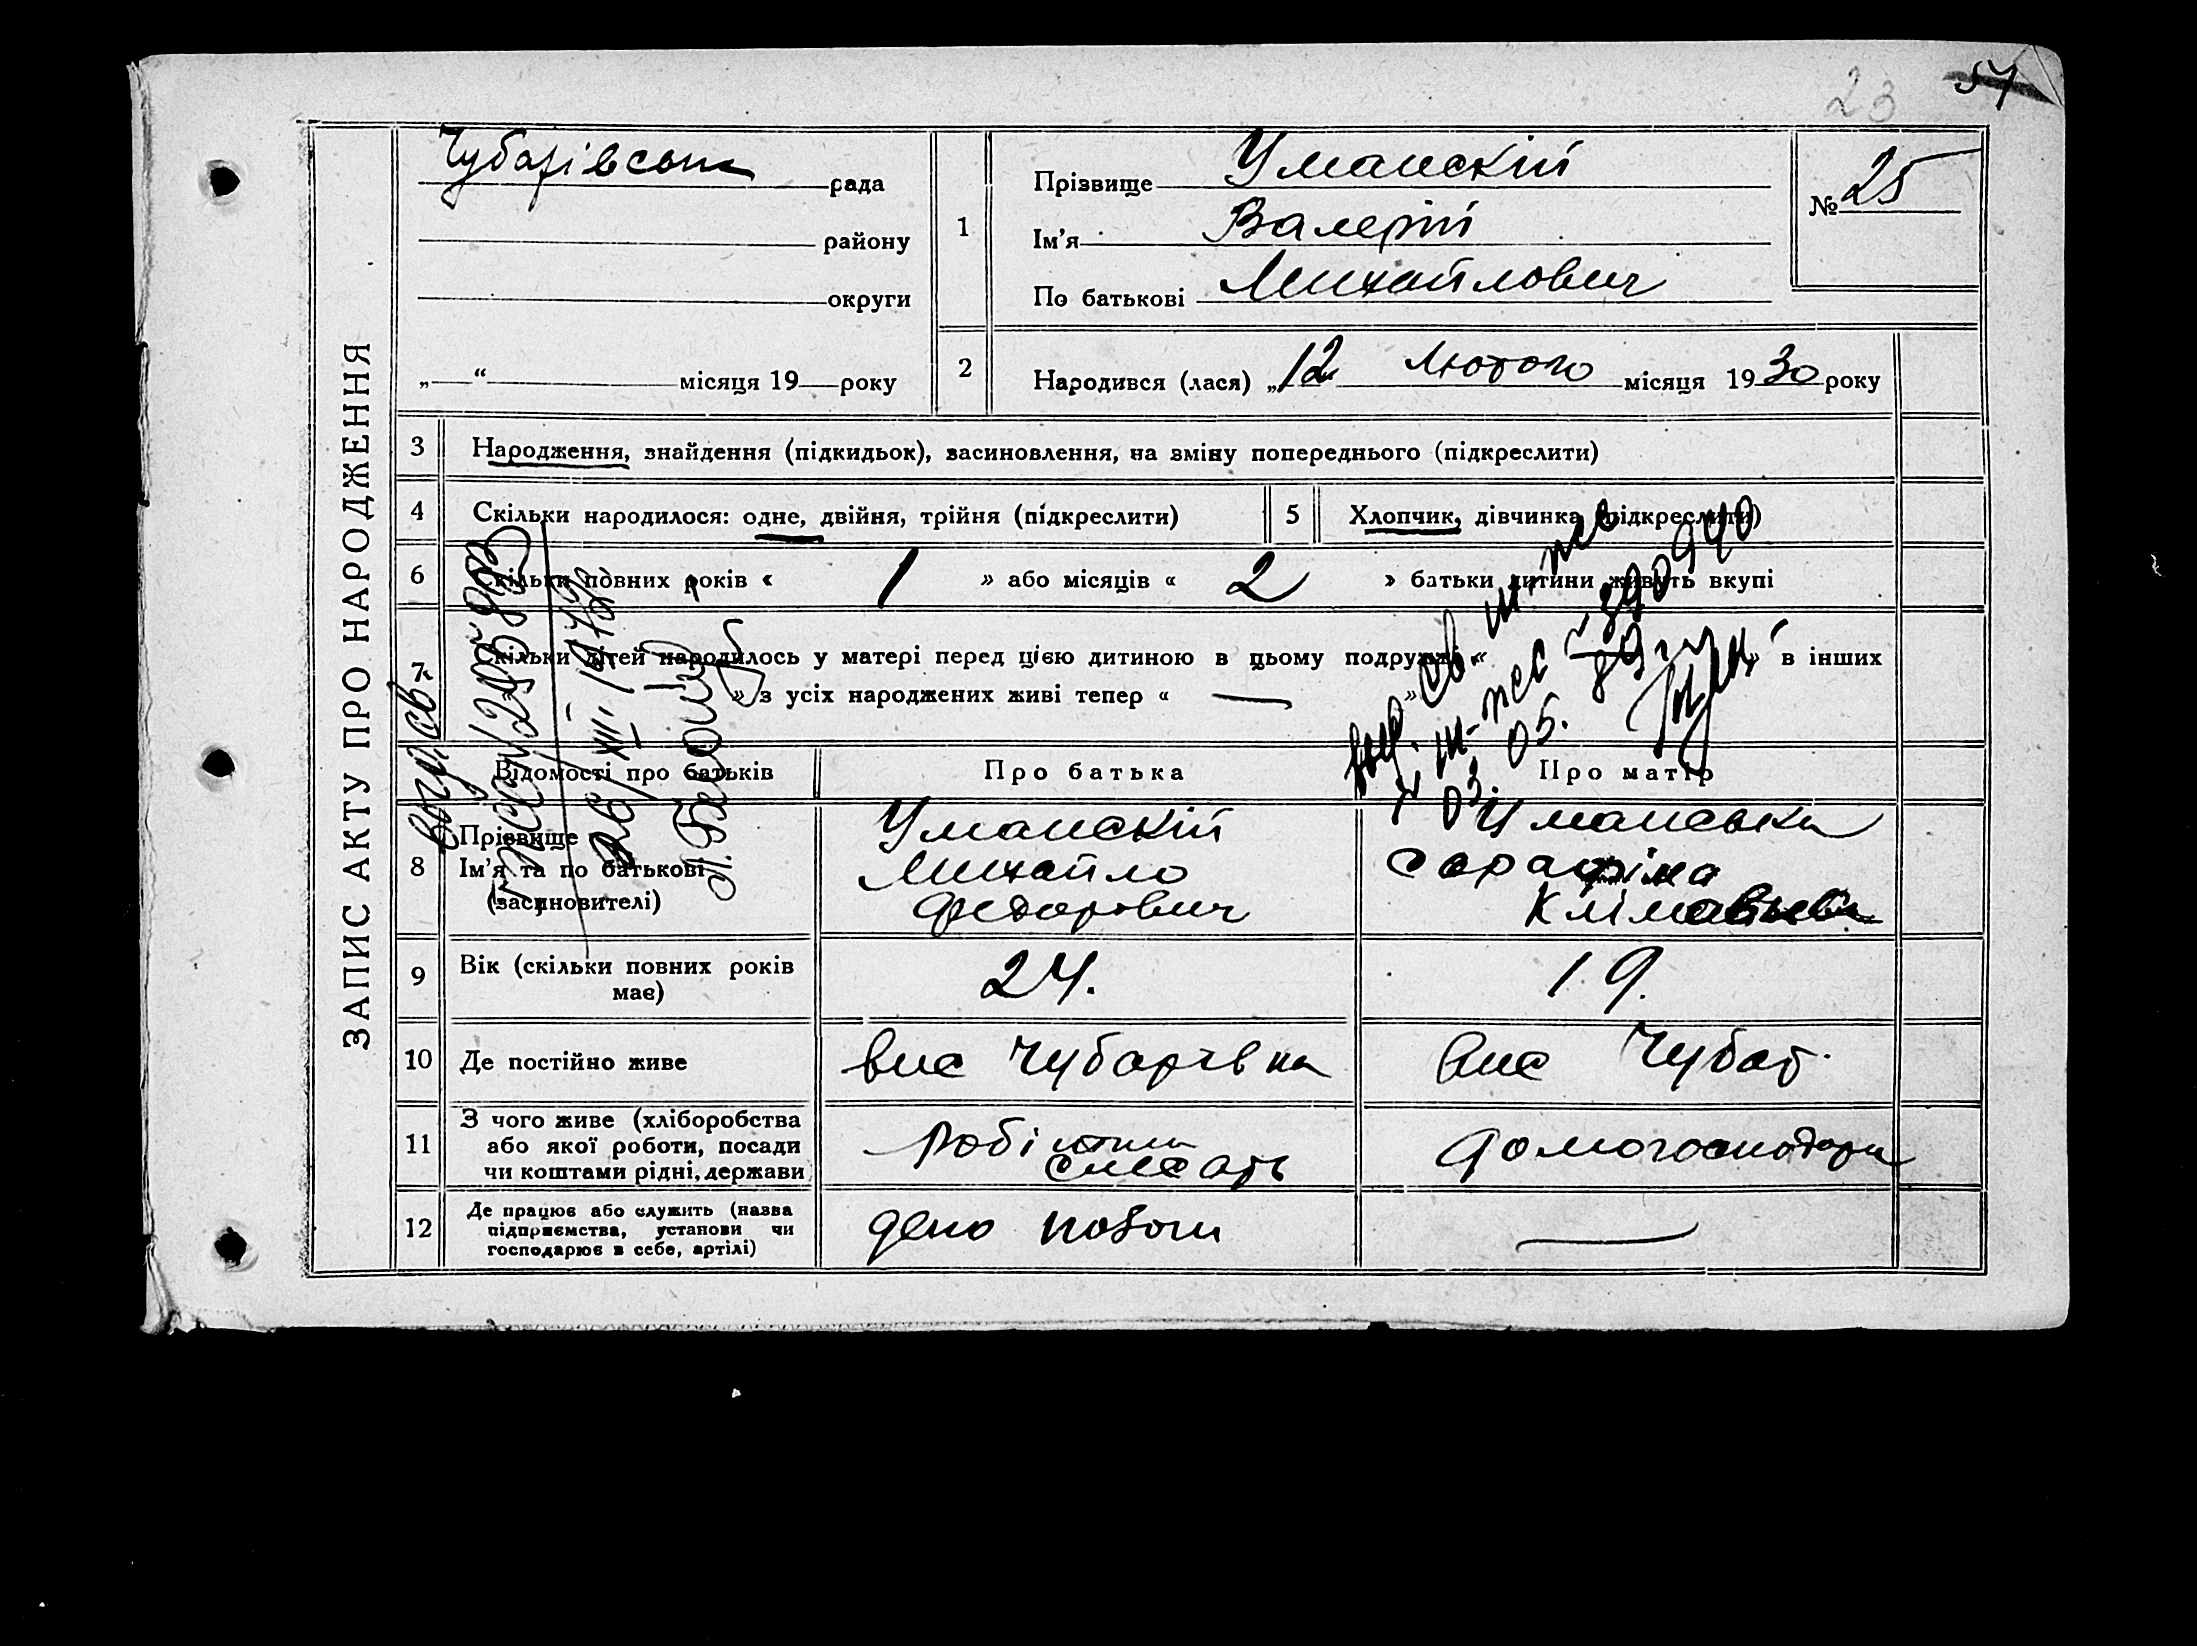 23 57
ЗАПИС АКТУ ПРО НАРОДЖЕННЯ
Чубарівська рада
району
округи
„ “ місяця 19 року
1
Прізвище Уманскій
Ім’я Валерій
По батькові Михайлович
№ 25
2 Народився (лася) „12 Лютого місяця 1930 року
3 Народження, знайдення (підкидьок), васиновлення, на зміну попереднього (підкреслити)
4 Скільки народилося: одне, двійня, трійня (підкреслити) 5 Хлопчик, дівчинка (підкреслити)
6 Скільки повних років « 1 » або місяців « 2 » батьки дитини живуть вкупі
7 Скільки дітей народилось у матері перед цією дитиною в цьому подружжі « » в інших
» з усіх народжених живі тепер « — »
Відомості про батьків Про батька Про матір
8 Прізвище
Ім’я та по батькові
(васиновителі)
Уманскій
Михайло
Федорович
Уманська
Серафіма
9 Вік (скільки повних років
має)
24. 19.
10 Де постійно живе вис Чубарівка вис Чубар.
11 З чого живе (хліборобства
або якої роботи, посади
чи коштами рідні, держави
Робітник
слесарь
домогосподарка
12 Де працює або служить (назва
підприємства, установи чи
господарює в себе, артілі)
депо —